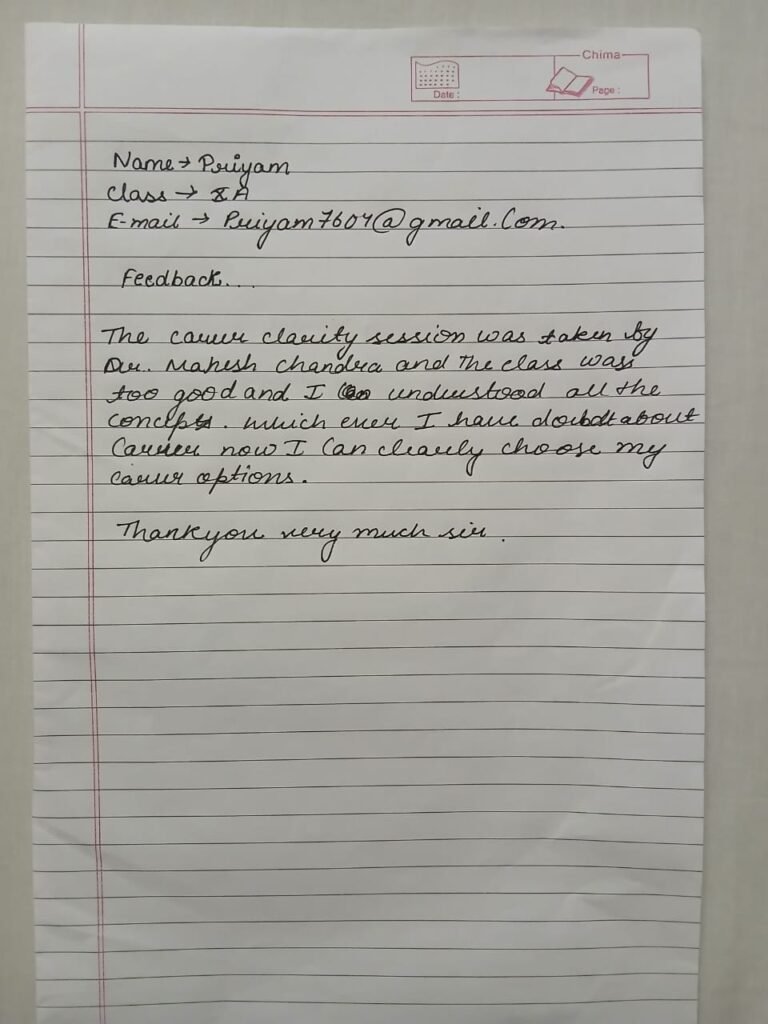 Chima
Date :
Page :
Name → Priyam
Class → X A
E-mail → Priyam7604@gmail.Com.
Feedback...
The career clarity session was taken by
Dr. Mahesh Chandra and The class wass
too good and I understood all the
concepts. which ever I have doubdt about
Carrier now I Can clearly choose my
career options.
Thankyou very much sir.